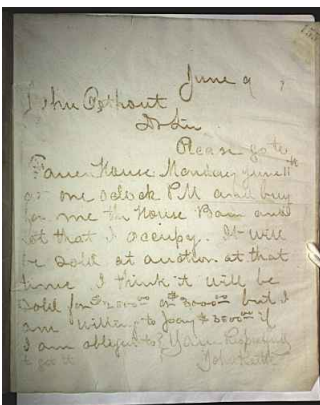 June 9
John
Dr Sir
Please go to
House Monday June 11th
at one oclock PM and buy
for me the House Barn and
lot that I occupy. It will
be sold at auction at that
time I think it will be
sold for $2500.00 or $3000.00 but I
am willing to pay $3500.00 if
I am obliged to Yours
to get it John